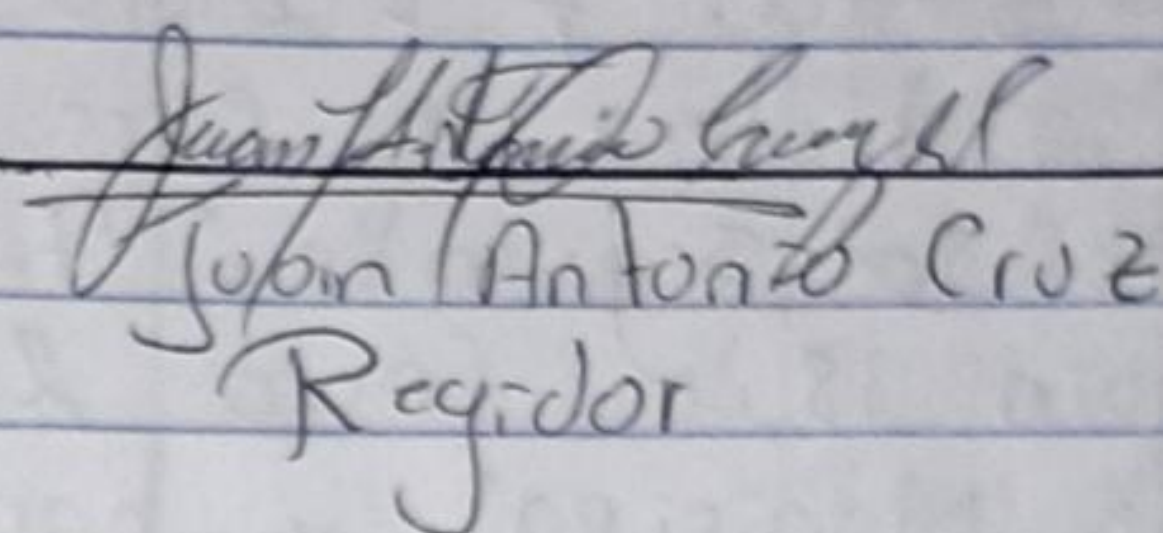 Juan Antonio Cruz
Juan Antonio Cruz
Regidor